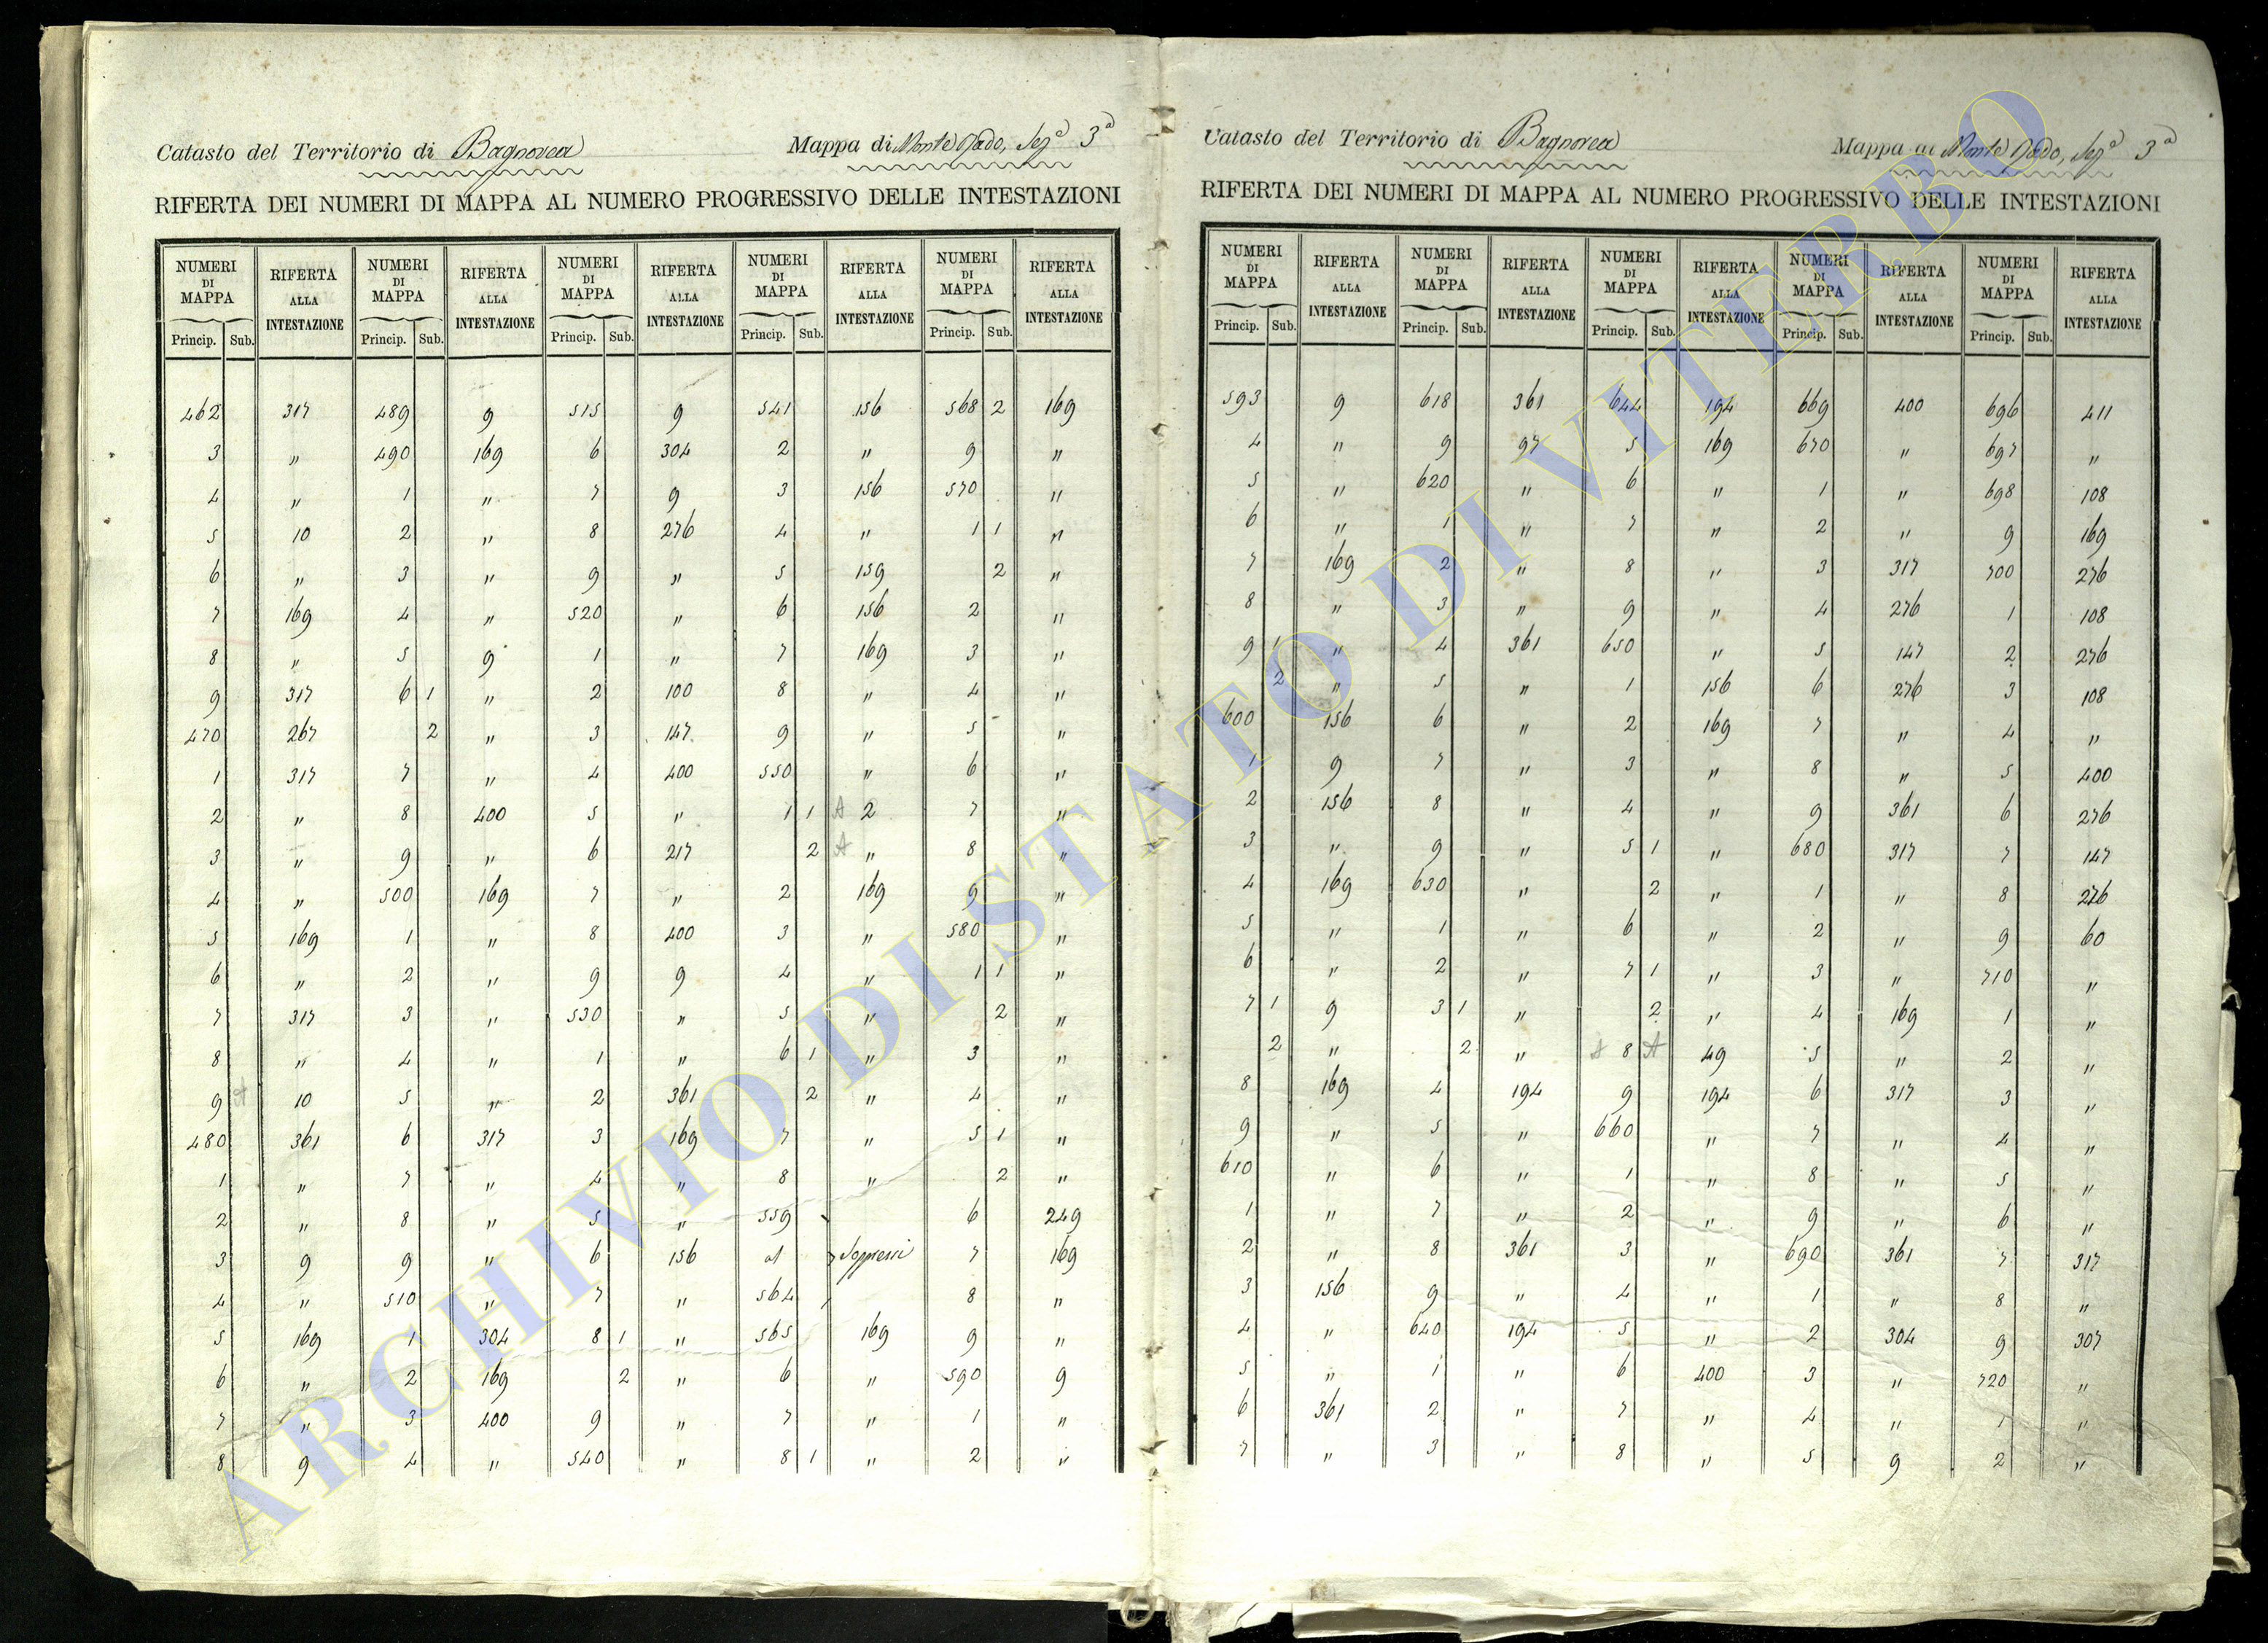 Catasto del Territorio di Bagnorea Mappa di Monte Rado, Sez.ª 3ª
RIFERTA DEI NUMERI DI MAPPA AL NUMERO PROGRESSIVO DELLE INTESTAZIONI
NUMERI DI MAPPA RIFERTA ALLA INTESTAZIONE NUMERI DI MAPPA RIFERTA ALLA INTESTAZIONE NUMERI DI MAPPA RIFERTA ALLA INTESTAZIONE NUMERI DI MAPPA RIFERTA ALLA INTESTAZIONE NUMERI DI MAPPA RIFERTA ALLA INTESTAZIONE
Princip. Sub. Princip. Sub. Princip. Sub. Princip. Sub. Princip. Sub.
462 317 489 9 515 9 541 156 568 2 169
3 " 490 169 6 304 2 " 9 "
4 " 1 " 7 9 3 156 570 "
5 10 2 " 8 276 4 " 1 1 "
6 " 3 " 9 " 5 159 2 "
7 169 4 " 520 " 6 156 2 "
8 " 5 9 1 " 7 169 3 "
9 317 6 1 " 2 100 8 " 4 "
470 267 2 " 3 147 9 " 5 "
1 317 7 " 4 400 550 " 6 "
2 " 8 400 5 " 1 1 A 2 7 "
3 " 9 " 6 217 2 A " 8 "
4 " 500 169 7 " 2 169 9 "
5 169 1 " 8 400 3 " 580 "
6 " 2 " 9 9 4 " 1 1 "
7 317 3 " 530 " 5 " 2 "
8 " 4 " 1 " 6 1 " 3 "
9 A 10 5 " 2 361 2 " 4 "
480 361 6 317 3 169 7 " 5 1 "
1 " 7 " 4 " 8 " 2 "
2 " 8 " 5 " 559 6 249
3 9 9 " 6 156 al Soppressi 7 169
4 " 510 " 7 " 564 8 "
5 169 1 304 8 1 " 565 169 9 "
6 " 2 169 2 " 6 " 590 9
7 " 3 400 9 " 7 " 1 "
8 9 4 " 540 " 8 1 " 2 "
Catasto del Territorio di Bagnorea Mappa di Monte Rado, Sez.ª 3ª
RIFERTA DEI NUMERI DI MAPPA AL NUMERO PROGRESSIVO DELLE INTESTAZIONI
NUMERI DI MAPPA RIFERTA ALLA INTESTAZIONE NUMERI DI MAPPA RIFERTA ALLA INTESTAZIONE NUMERI DI MAPPA RIFERTA ALLA INTESTAZIONE NUMERI DI MAPPA RIFERTA ALLA INTESTAZIONE NUMERI DI MAPPA RIFERTA ALLA INTESTAZIONE
Princip. Sub. Princip. Sub. Princip. Sub. Princip. Sub. Princip. Sub.
593 9 618 361 644 194 669 400 696 411
4 " 9 97 5 169 670 " 697 "
5 " 620 " 6 " 1 " 698 108
6 " 1 " 7 " 2 " 9 169
7 169 2 " 8 " 3 317 700 276
8 " 3 " 9 " 4 276 1 108
9 1 " 4 361 650 " 5 147 2 276
2 " 5 " 1 156 6 276 3 108
600 156 6 " 2 169 7 " 4 "
1 9 7 " 3 " 8 " 5 400
2 156 8 " 4 " 9 361 6 276
3 " 9 " 5 1 " 680 317 7 147
4 169 630 " 2 " 1 " 8 276
5 " 1 " 6 " 2 " 9 60
6 " 2 " 7 1 " 3 " 710 "
7 1 9 3 1 " 2 " 4 169 1 "
2 " 2 " A 8 A 49 5 " 2 "
8 169 4 194 9 194 6 317 3 "
9 " 5 " 660 " 7 " 4 "
610 " 6 " 1 " 8 " 5 "
1 " 7 " 2 " 9 " 6 "
2 " 8 361 3 " 690 361 7 317
3 156 9 " 4 " 1 " 8 "
4 " 640 194 5 " 2 304 9 307
5 " 1 " 6 400 3 " 720 "
6 361 2 " 7 " 4 " 1 "
7 " 3 " 8 " 5 9 2 "
ARCHIVIO DI STATO DI VITERBO